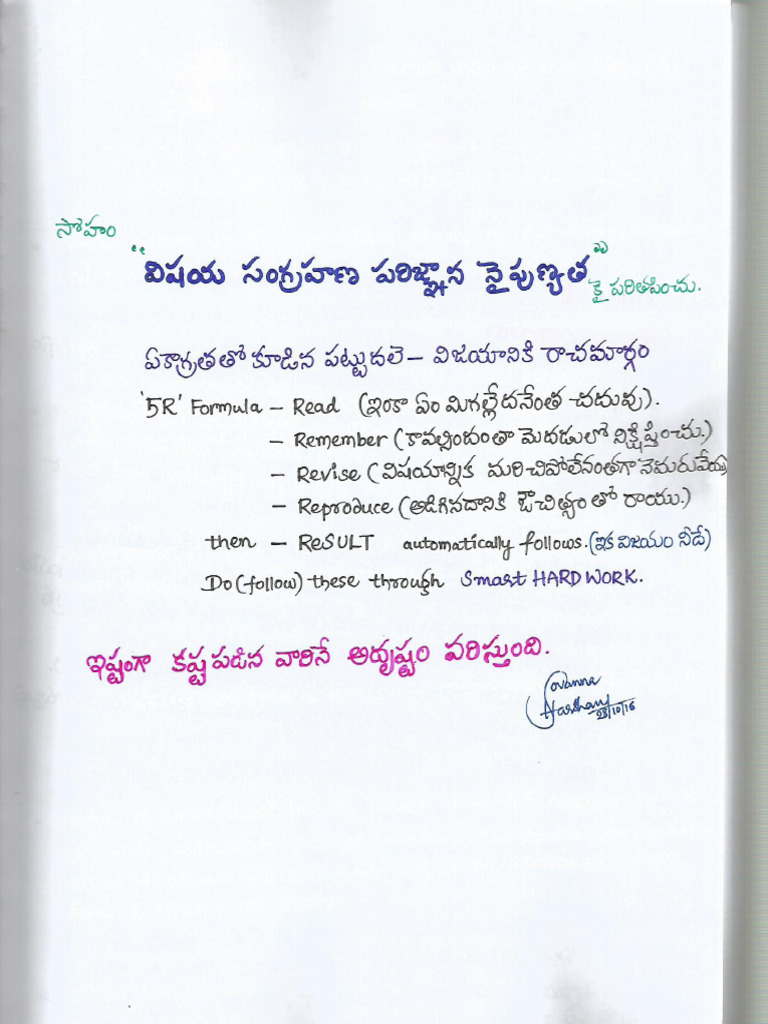 సోహం
"విషయ సంగ్రహణ పరిజ్ఞాన నైపుణ్యత" కై పరితపించు.
ఏకాగ్రతతో కూడిన పట్టుదలె - విజయానికి రాచమార్గం
'5R' Formula - Read (ఇంకా ఏం మిగల్లేదనేంత చదువు).
- Remember (కావల్సిందంతా మెదడులో నిక్షిప్తించు.)
- Revise (విషయాన్నిక మరిచిపోలేనంతగా నెమరువేయు)
- Reproduce (అడిగినదానికి ఔచిత్యం తో రాయు.)
then - ReSULT automatically follows. (ఇక విజయం నీదే)
Do (follow) these through Smart HARD WORK.
ఇష్టంగా కష్టపడిన వారినే అదృష్టం వరిస్తుంది.
23/10/16